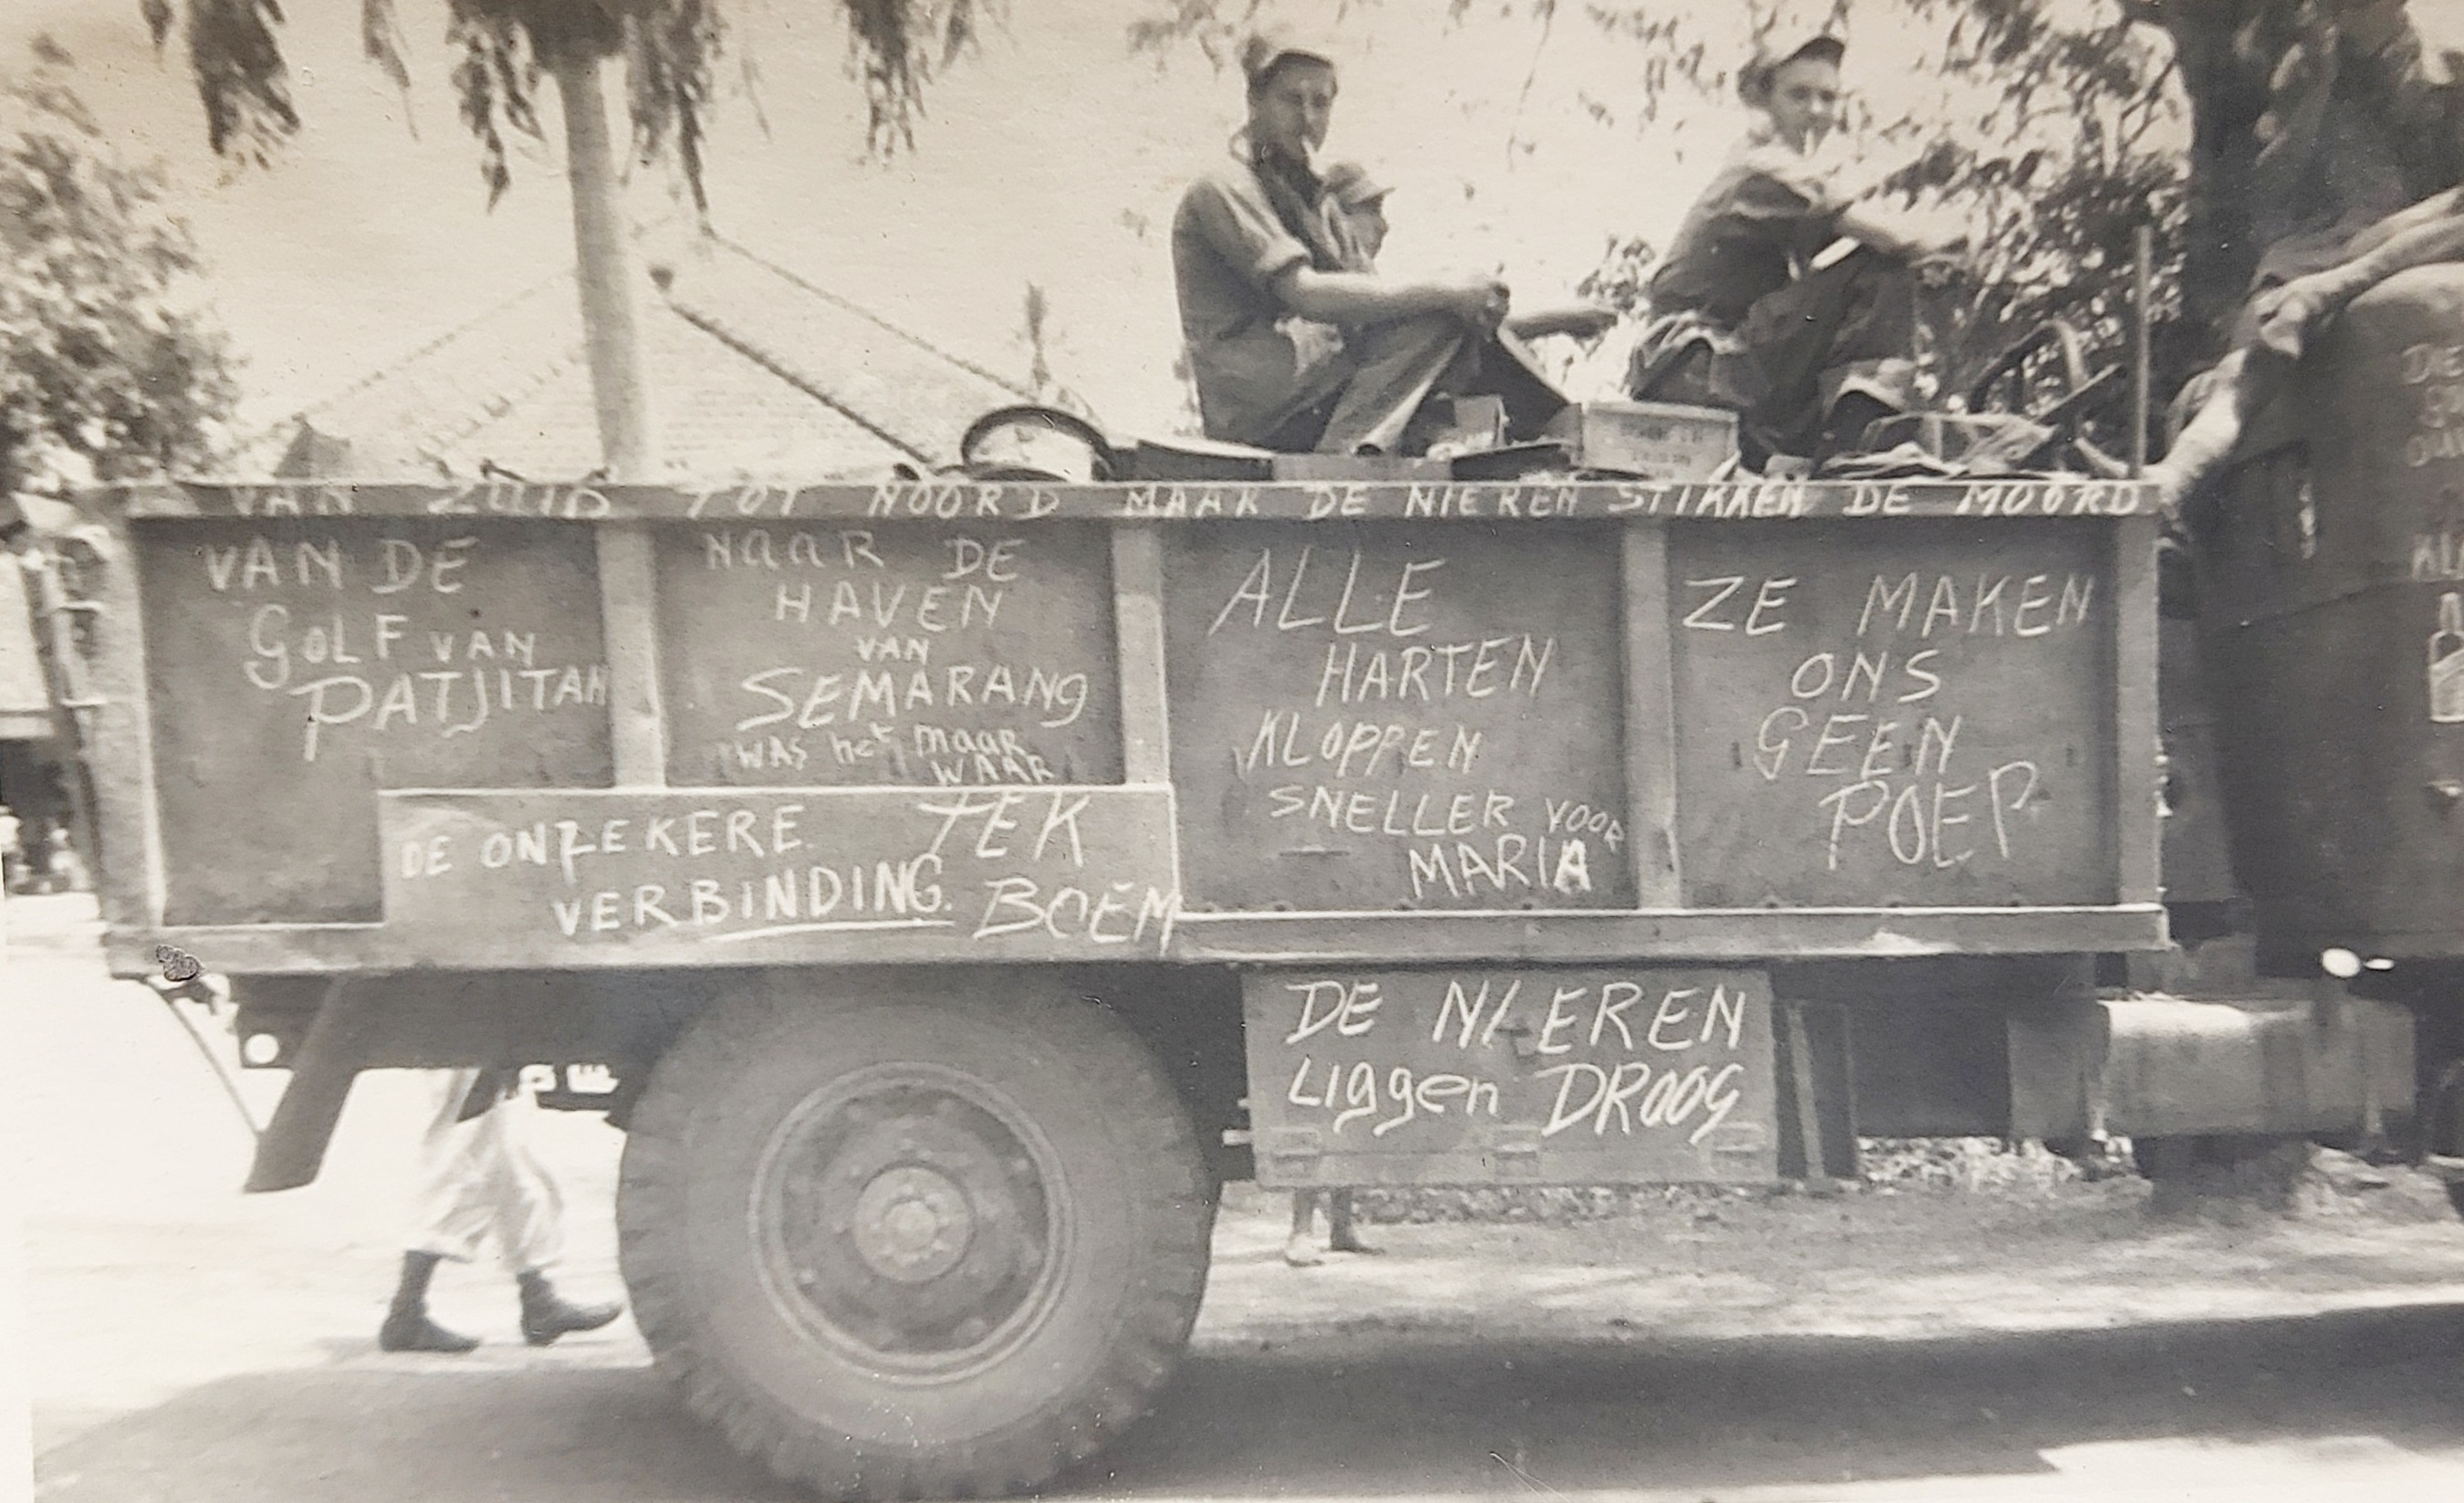 VAN ZUID TOT NOORD MAAR DE NIEREN STIKKEN DE MOORD
VAN DE
GOLF VAN
PATJITAN
NAAR DE
HAVEN
VAN
SEMARANG
WAS het maar
WAAR
ALLE
HARTEN
KLOPPEN
SNELLER VOOR
MARIA
ZE MAKEN
ONS
GEEN
POEP
DE ONZEKERE
VERBINDING.
TEK
BOEM
DE NIEREN
Liggen DROOG